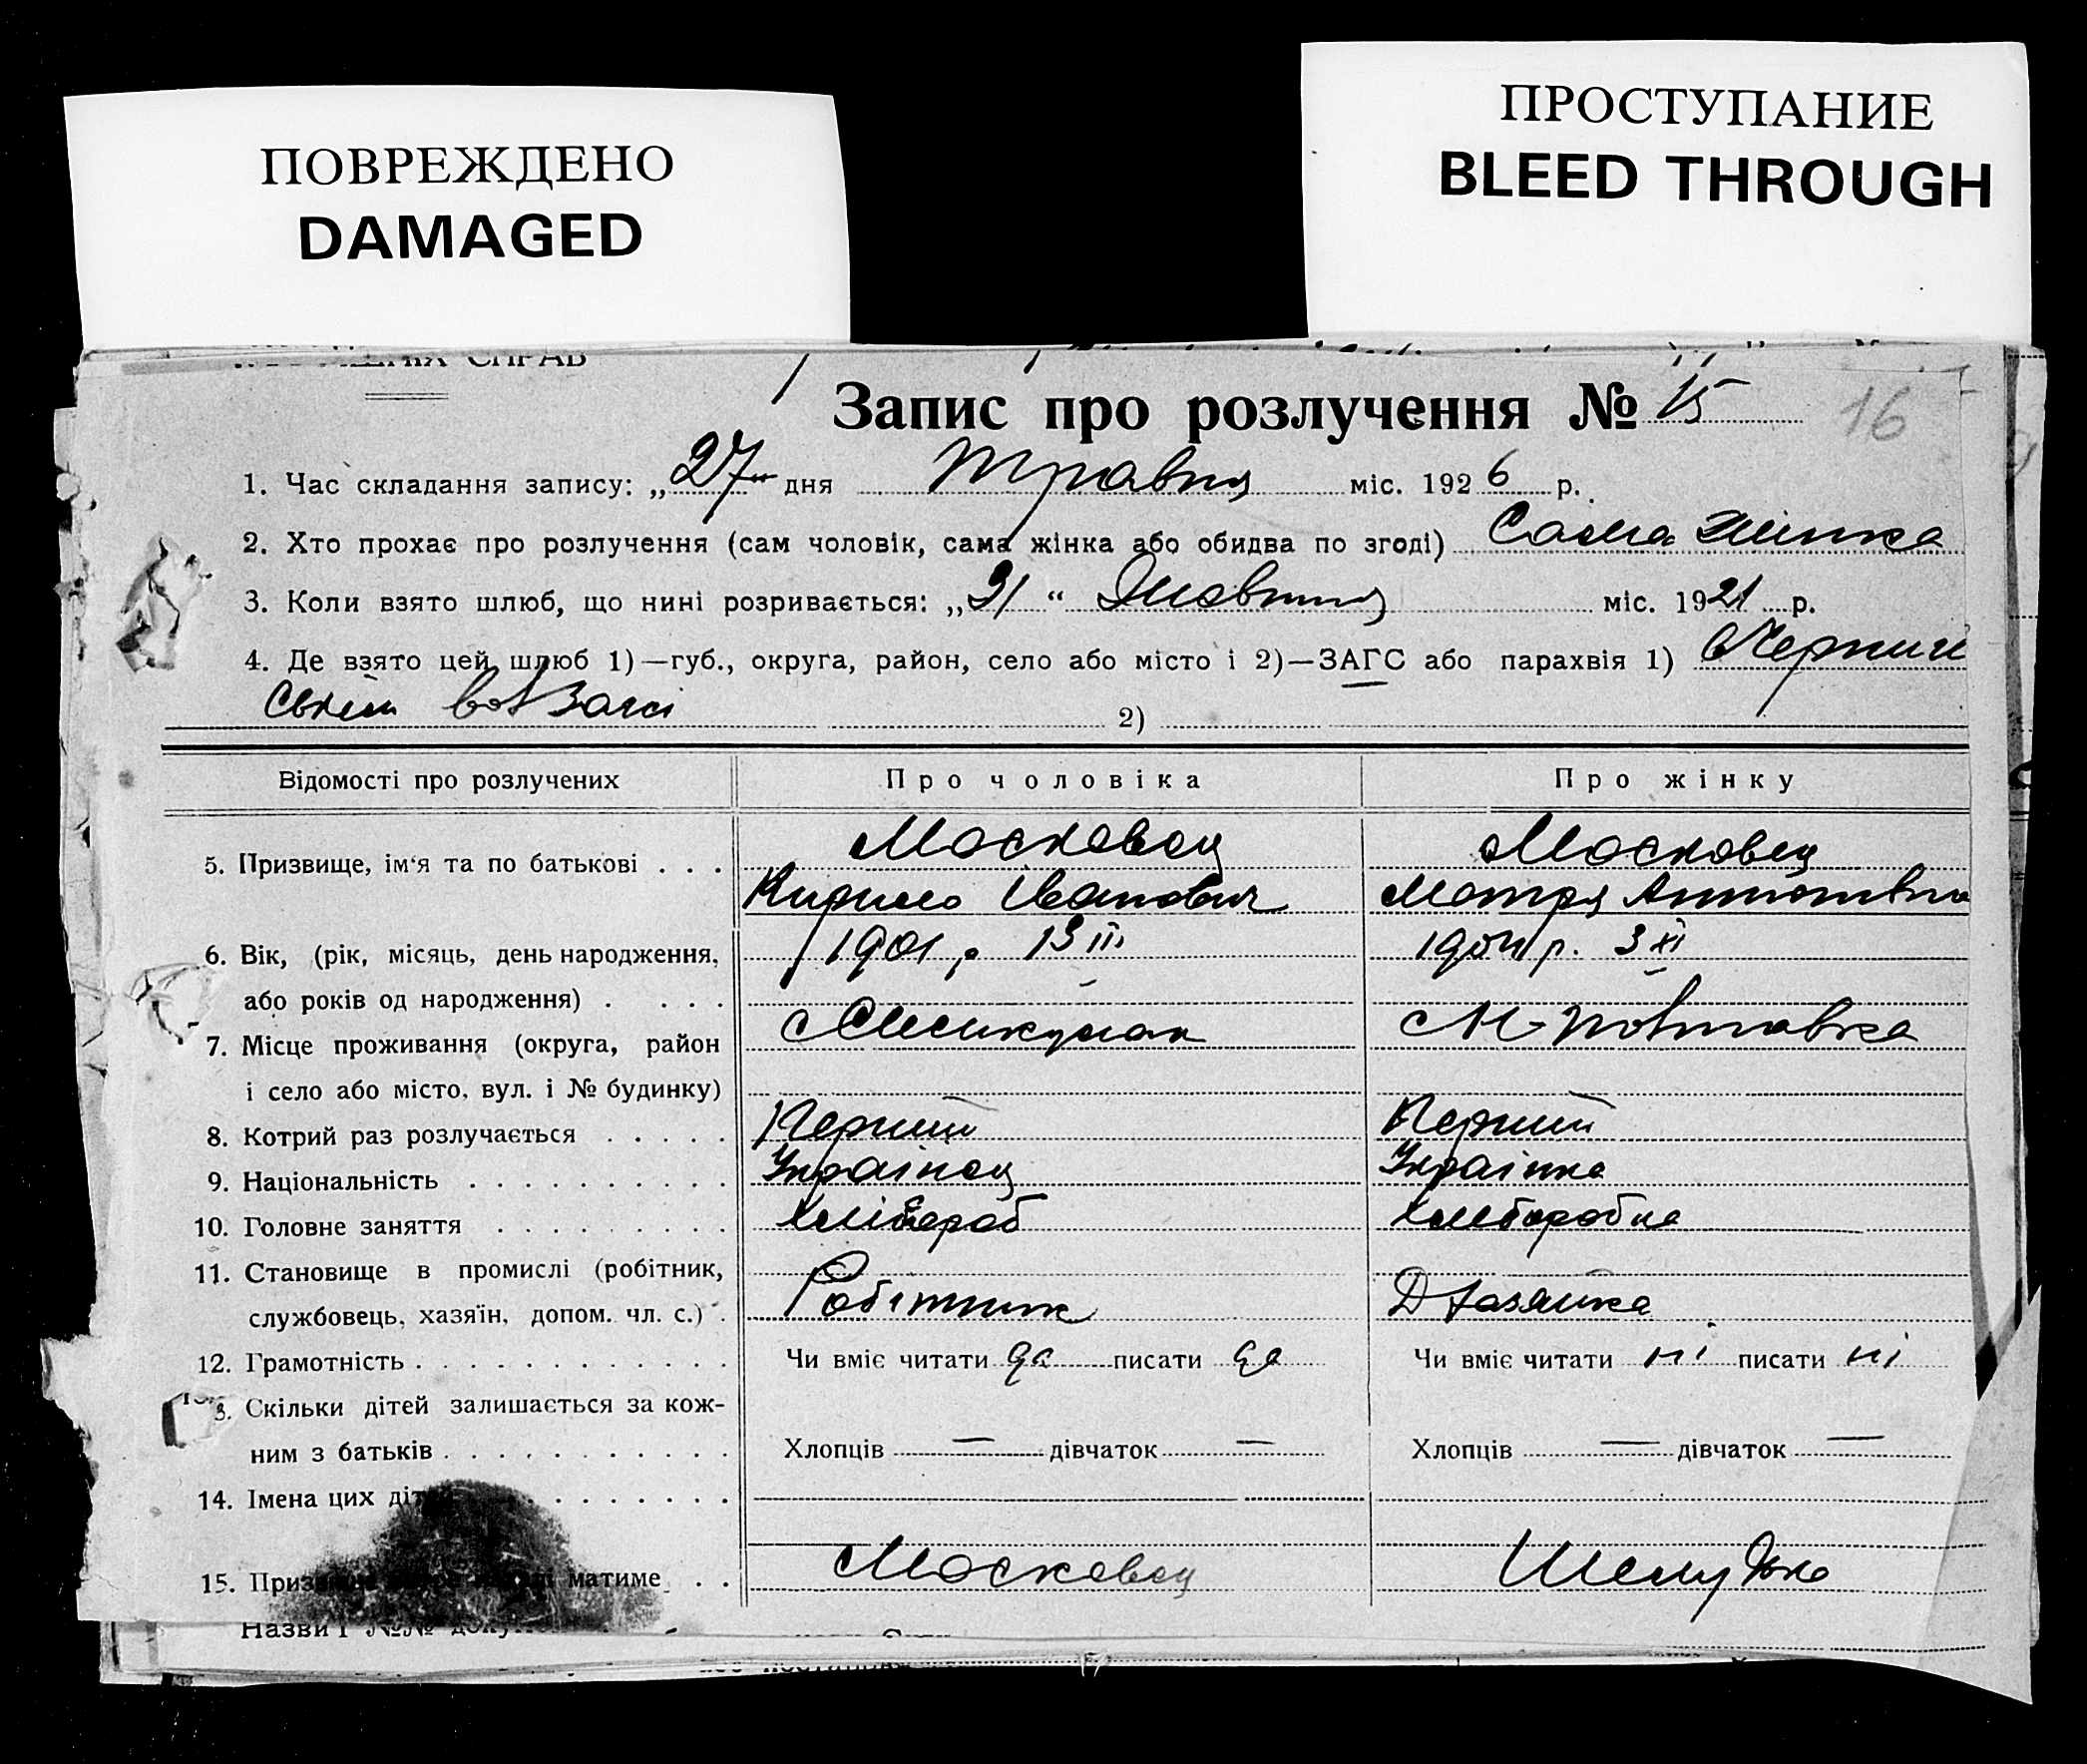 ПОВРЕЖДЕНО
DAMAGED
ПРОСТУПАНИЕ
BLEED THROUGH
СПРАВ
Запис про розлучення № 15
16
1. Час складання запису: „27“ дня Травня міс. 1926 р.
2. Хто прохає про розлучення (сам чоловік, сама жінка або обидва по згоді) Сама жінка
3. Коли взято шлюб, що нині розривається: „31“ Жовтня міс. 1921 р.
4. Де взято цей шлюб 1)—губ., округа, район, село або місто і 2)—ЗАГС або парахвія 1)
2)
Відомості про розлучених
Про чоловіка
Про жінку
5. Призвище, ім‘я та по батькові . . . Московец Московец
Кирило Іванович Мотря Антонівна
6. Вік, (рік, місяць, день народження, 1901 р 13 III 1904 р. 3 XI
або років од народження) . . . .
7. Місце проживання (округа, район
і село або місто, вул. і № будинку)
8. Котрий раз розлучається . . . . . Перший Перший
9. Національність . . . . . . . . . . Українец Українка
10. Головне заняття . . . . . . . . . Хлібороб Хліборобка
11. Становище в промислі (робітник,
службовець, хазяїн, допом. чл. с.) . Робітник Д хазяйка
12. Грамотність . . . . . . . . . . . . Чи вміє читати да писати да Чи вміє читати ні писати ні
3. Скільки дітей залишається за кож-
ним з батьків . . . . . . . . . . . Хлопців — дівчаток — Хлопців — дівчаток —
14. Імена цих діт
15. Приз матиме . . Московец Шелудько
Назви і №№ доку